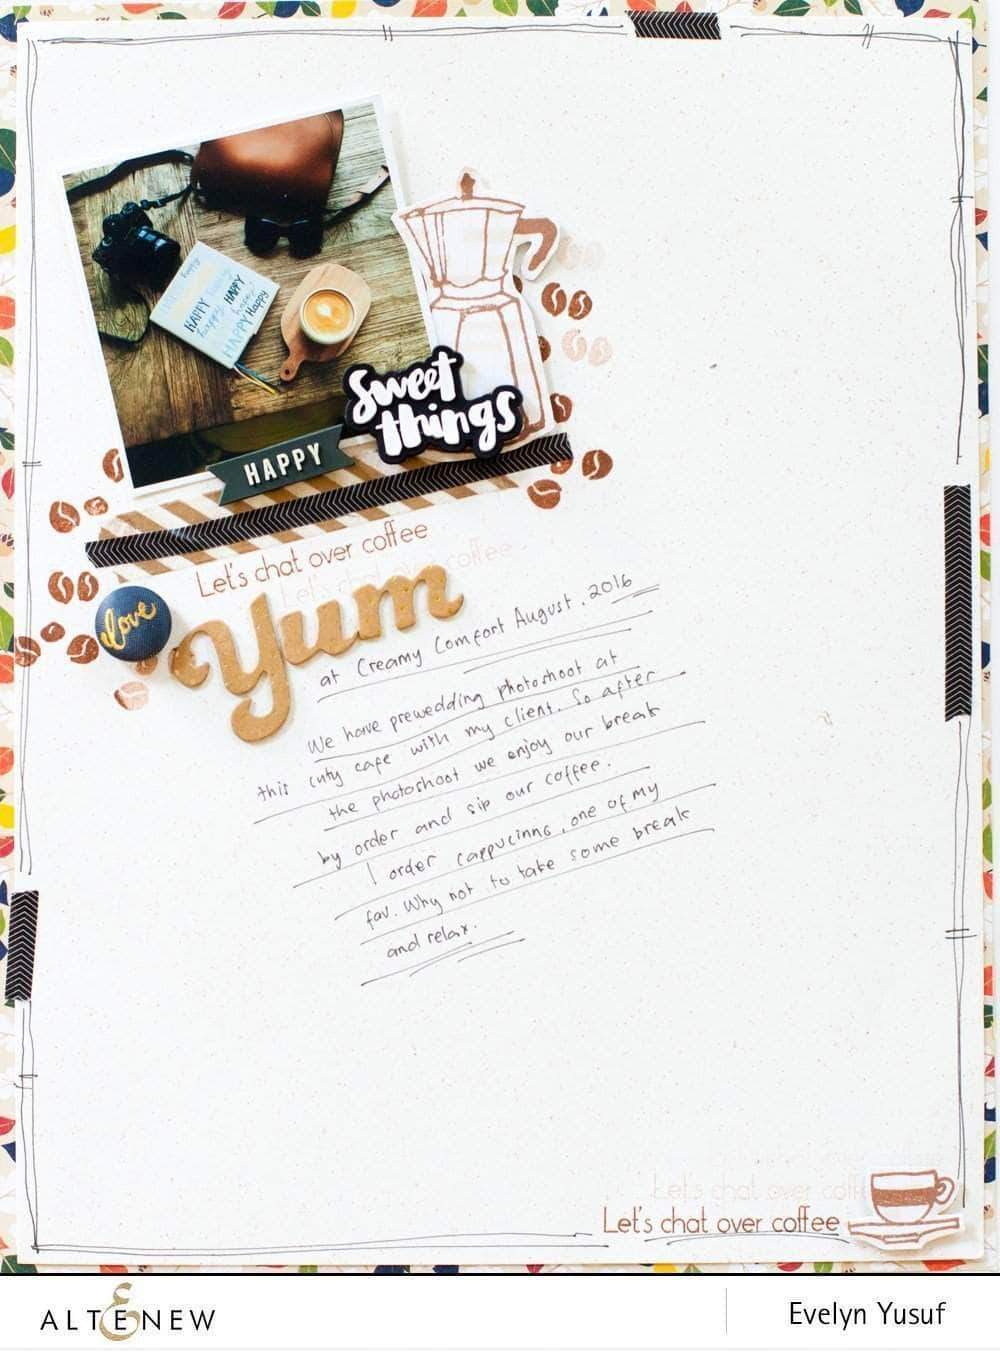 happy
HAPPY
HAPPY
happy
happy
HAPPY
HAPPY
sweet
things
HAPPY
Let's chat over coffee
Let's chat over coffee
love
Yum
at Creamy Comfort August, 2016
We have prewedding photoshoot at
this cuty cafe with my client. So after
the photoshoot we enjoy our break
by order and sip our coffee.
I order cappucinno, one of my
fav. Why not to take some break
and relax.
Let's chat over coff
Let's chat over coffee
ALTENEW
Evelyn Yusuf